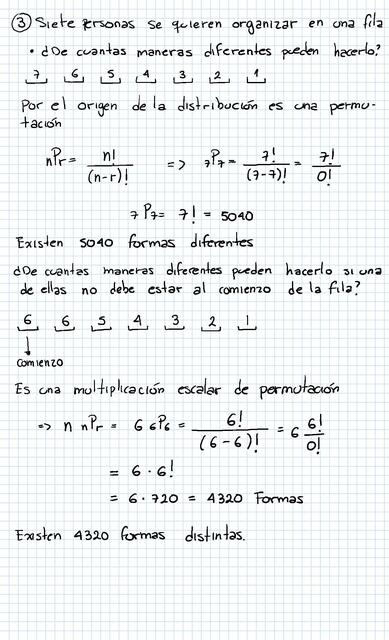 ③ Siete personas se quieren organizar en una fila
• ¿De cuantas maneras diferentes pueden hacerlo?
7 6 5 4 3 2 1
Por el origen de la distribución es una permu-
tación
nPr = n!/(n-r)! => 7P7 = 7!/(7-7)! = 7!/0!
7P7 = 7! = 5040
Existen 5040 formas diferentes
¿De cuantas maneras diferentes pueden hacerlo si una
de ellas no debe estar al comienzo de la fila?
6 6 5 4 3 2 1
↓
comienzo
Es una multiplicación escalar de permutación
=> n nPr = 6 6P6 = 6!/(6-6)! = 6 6!/0!
= 6 · 6!
= 6 · 720 = 4320 Formas
Existen 4320 formas distintas.